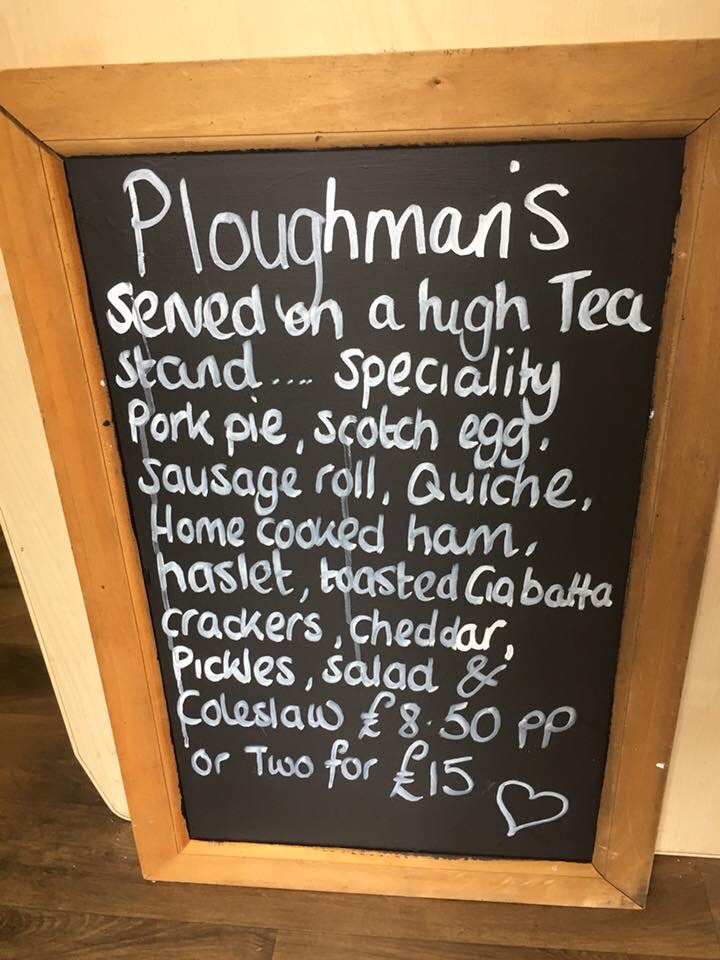 Ploughman's
Served on a high Tea
stand.... Speciality
Pork pie, scotch egg,
Sausage roll, Quiche,
Home cooked ham,
haslet, toasted Ciabatta
crackers, cheddar,
Pickles, salad &
Coleslaw £8.50 pp
or Two for £15